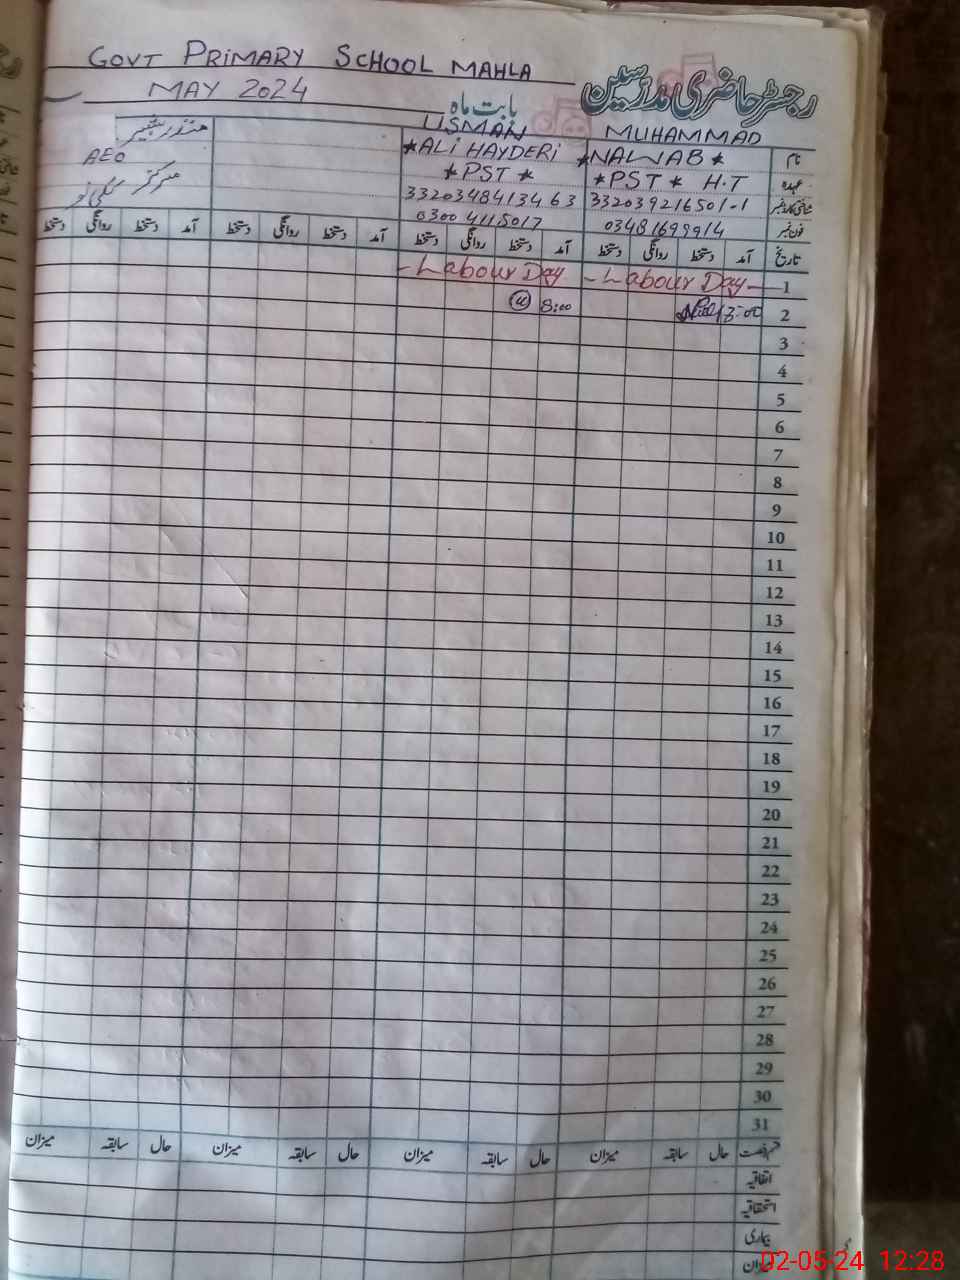 GOVT PRIMARY SCHOOL MAHLA
رجسٹر حاضری مدرسین
MAY 2024 بابت ماہ
نام MUHAMMAD *NAWAB*
USMAN *ALI HAYDERI
AEO
عہدہ *PST* H.T
*PST*
مرکز
شناختی کارڈ نمبر 332039216501-1
3320348413463
فون نمبر 03481699914
0300 4115017
تاریخ آمد دستخط روانگی دستخط آمد دستخط روانگی دستخط آمد دستخط روانگی دستخط آمد دستخط روانگی دستخط
1 -Labour Day- -Labour Day
2 8:00
3
4
5
6
7
8
9
10
11
12
13
14
15
16
17
18
19
20
21
22
23
24
25
26
27
28
29
30
31
قسم رخصت حال سابقہ میزان حال سابقہ میزان حال سابقہ میزان حال سابقہ میزان
اتفاقیہ
استحقاقیہ
بیماری
میزان
02-05-24 12:28